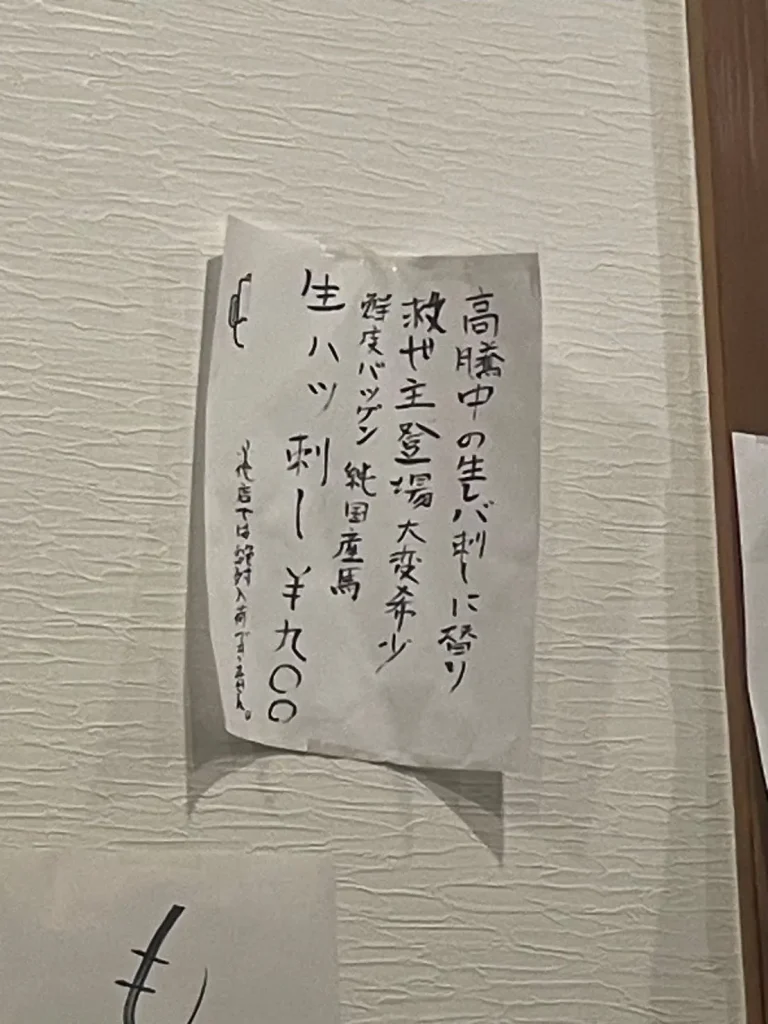 高騰中の生レバ刺しに替り
救世主登場 大変希少
鮮度バツグン 純国産馬
生ハツ刺し ¥九〇〇
他店では絶対入荷できません。
も